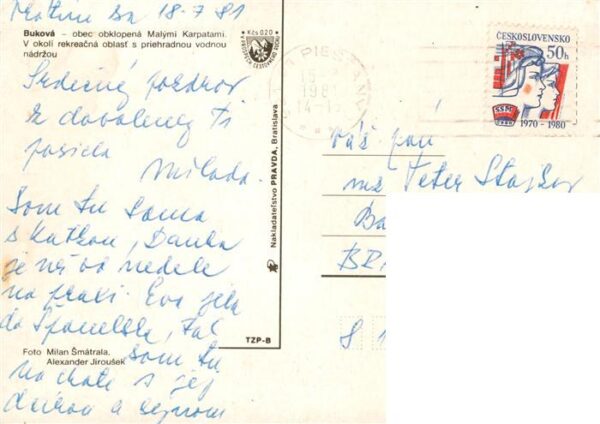 18-7 81
Buková – obec obklopená Malými Karpatami.
V okolí rekreačná oblasť s priehradnou vodnou
nádržou
Kčs 0,20
Srdečný pozdrav
z dovolenej Ti
posiela Milada.
Som tu sama
s Katkou, Danka
je už od nedele
na praxi. Eva
do Španielska, tak
som tu
na chate s jej
a synom
Foto Milan Šmátrala,
Alexander Jiroušek
Nakladateľstvo PRAVDA, Bratislava
TZP-B
PIEŠŤANY
ČESKOSLOVENSKO
50h
SSM
1970 - 1980
Váš pán
Peter
Ba
8 1